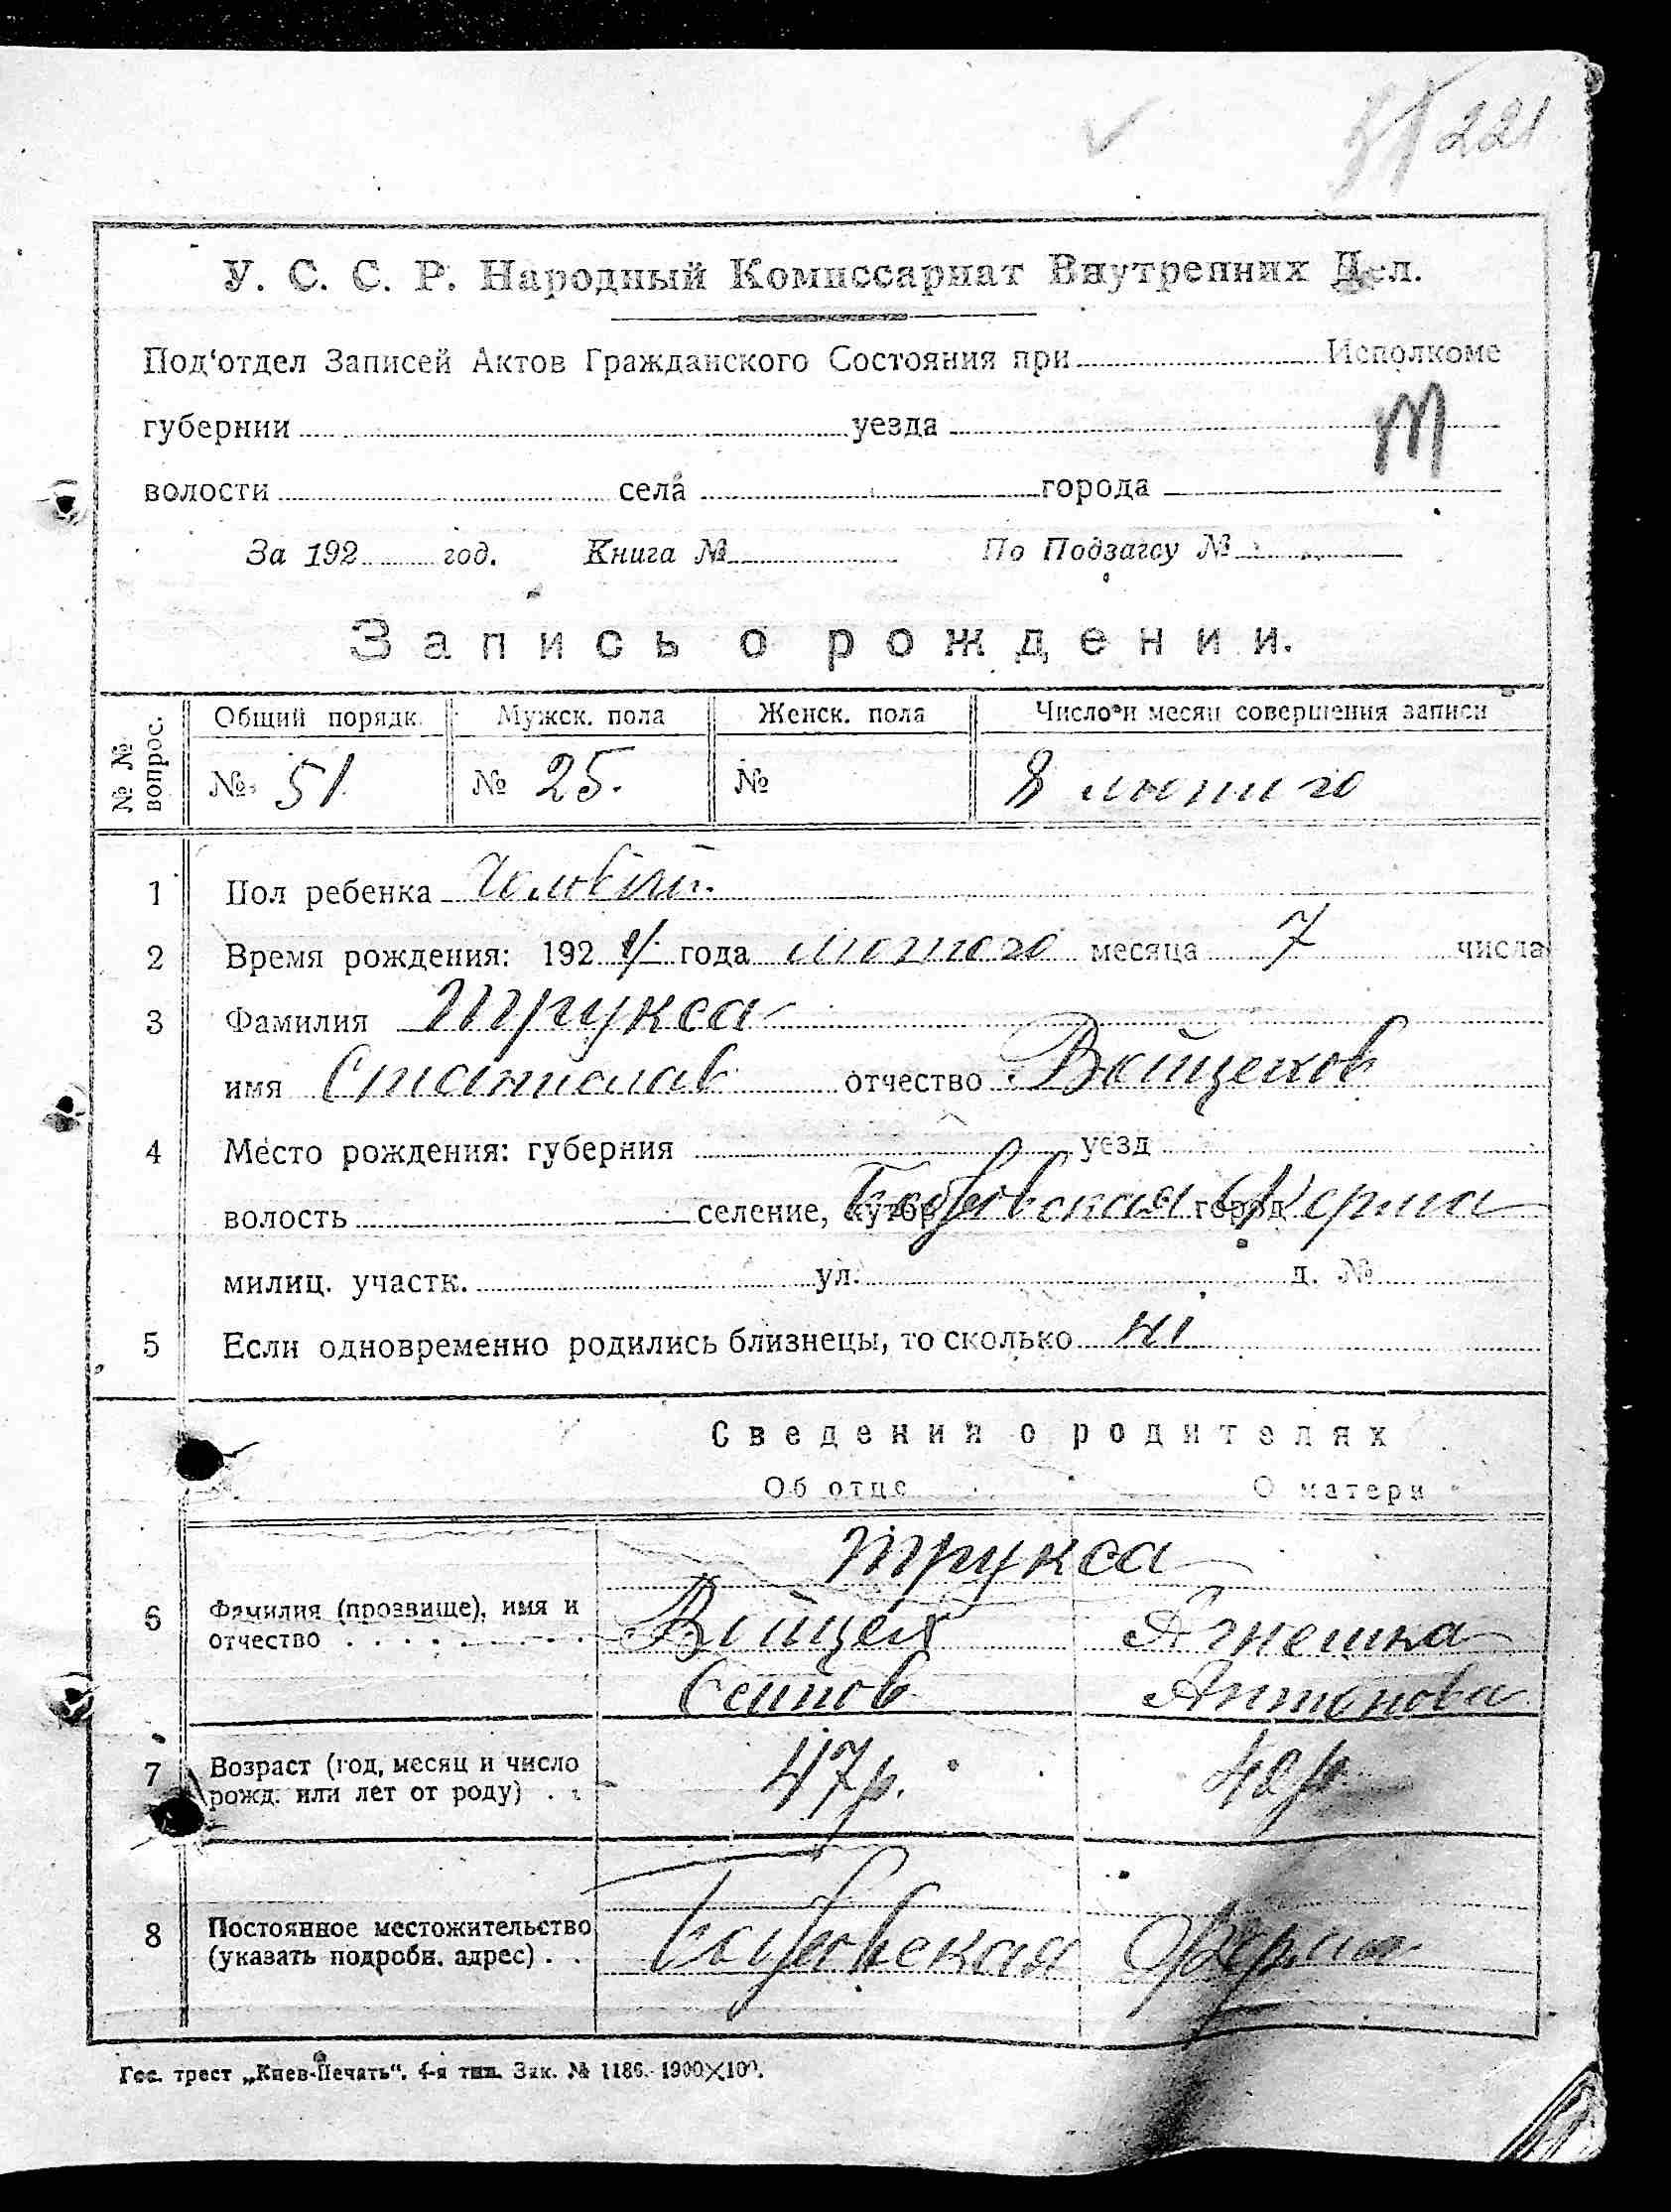 221
У. С. С. Р. Народный Комиссариат Внутренних Дел.
Под‘отдел Записей Актов Гражданского Состояния при Исполкоме
губернии уезда
волости села города
За 192 год. Книга № По Подзагсу №
Запись о рождении.
№ № вопрос. Общий порядк. Мужск. пола Женск. пола Число и месяц совершения записи
№ 51 № 25. № 8 лютого
1 Пол ребенка Чоловічий
2 Время рождения: 192 года лютого месяца 7 числа
3 Фамилия Трукса
имя Станислав отчество Войцехов
4 Место рождения: губерния уезд
волость селение, хутор город Ферма
милиц. участк. ул. д. №
5 Если одновременно родились близнецы, то сколько ні
Сведения о родителях
Об отце О матери
Трукса
6 Фамилия (прозвище), имя и Войцех Агнешка
отчество Осипов Антонова
7 Возраст (год, месяц и число 47р. 42р.
рожд. или лет от роду)
8 Постоянное местожительство
(указать подробн. адрес) Ферма
Гос. трест „Киев-Печать“. 4-я тип. Зак. № 1186.-1900×100.